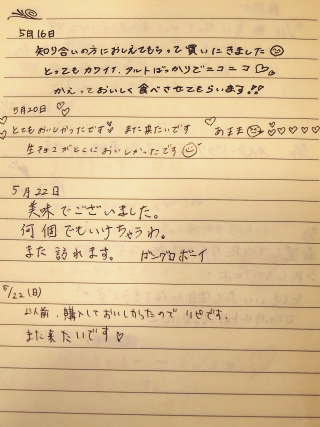 5月16日
知り合いの方におしえてもらって買いにきました
とってもカワイイ、タルトばっかりでニコニコ
かえっておいしく食べさせてもらいます!!
5月20日
とてもおいしかったです また来たいです あままい
生チョコがとくにおいしかったです
5月22日
美味でございました。
何個でもいけちゃうわ。
また訪れます。 ガングロボーイ
5/22(日)
以前、購入しておいしかったのでリピです。
また来たいです